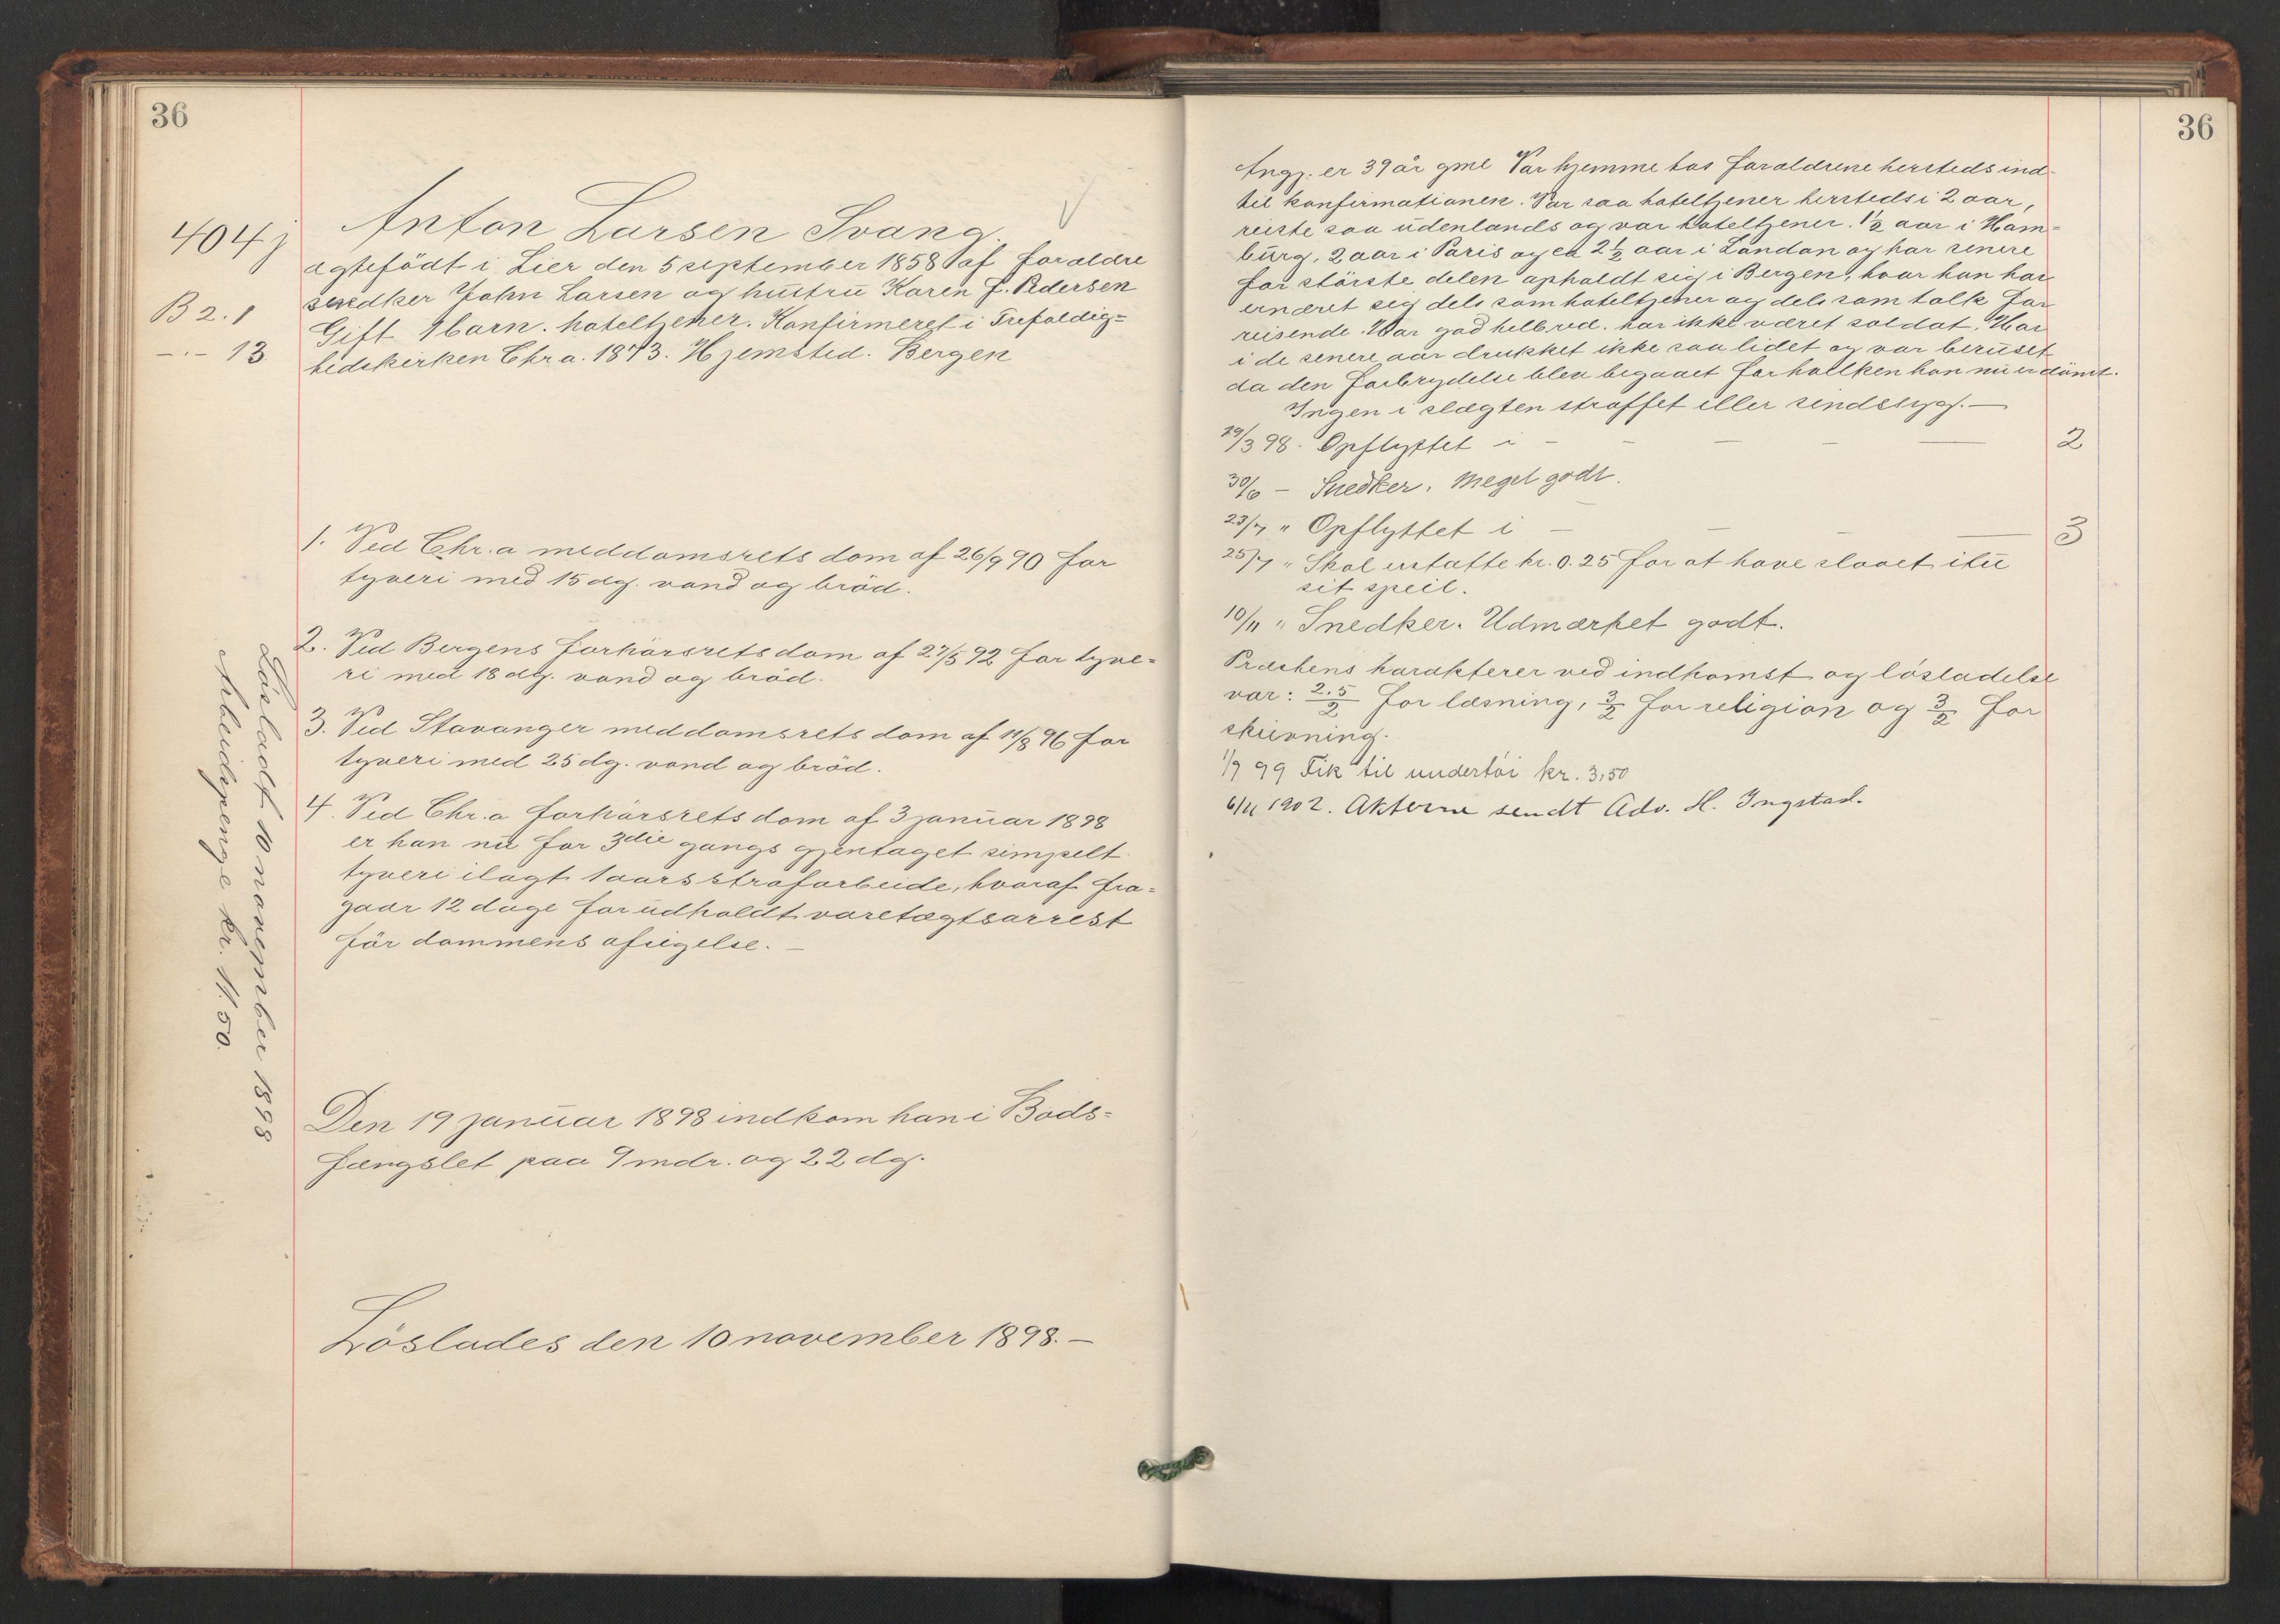 36
404 j
B 2. 1
-"- 13
Anton Larsen Svang.
ægtefödt i Lier den 5 september 1858 af foraldre
snedker John Larsen og hustru Karen f. Pedersen
Gift 1 barn. hoteltjener. Konfirmeret i Trefoldig=
hedskirken Chr.a. 1873. Hjemsted. Bergen
1. Ved Chr.a meddomsrets dom af 26/9 90 for
tyveri med 15 dg. vand og bröd.
2. Ved Bergens forhörsrets dom af 27/5 92 for tyve=
ri med 18 dg. vand og bröd.
3. Ved Stavanger meddomsrets dom af 11/8 96 for
tyveri med 25 dg. vand og bröd.
4. Ved Chr.a forhörsrets dom af 3 januar 1898
er han nu for 3die gangs gjentaget simpelt
tyveri ilagt 1 aars strafarbeide, hvoraf fra=
gaar 12 dage for udholdt varetægtsarrest
för dommens afsigelse. —
Den 19 januar 1898 indkom han i Bods=
fængslet paa 9 mdr. og 22 dg.
Löslades den 10 november 1898. —
Lösladt 10 november 1898
Arbeidspenge kr. 11.50.
36
Angj. er 39 år gml Var hjemme hos foraldrene hersteds ind-
til konfirmationen. Var saa hoteltjener hersteds i 2 aar,
reiste saa udenlands og var hoteltjener. 1 1/2 aar i Ham=
burg, 2 aar i Paris og ca 2 1/2 aar i London og har senere
for störste delen opholdt sig i Bergen, hvor han har
ernæret sig dels som hoteltjener og dels som tolk for
reisende. Har god helbred. har ikke været soldat. Har
i de senere aar drukket ikke saa lidet og var beruset
da den forbrydelse blev begaaet for hvilken han nu er dömt.
Ingen i slægten straffet eller sindssyg. —
19/3 98. Opflyttet i - - — - — 2
30/6 - Snedker. Meget godt.
23/7 " Opflyttet i - - - — 3
25/7 " Skal erstatte kr. 0.25 for at have slaaet itu
sit speil.
10/11 " Snedker. Udmærket godt.
Præstens karakterer ved indkomst og lösladelse
var: 2.5/2 for læsning, 3/2 for religion og 3/2 for
skrivning.
1/9 99 Fik til undertöi kr. 3,50
6/11 1902. Akterne sendt Adv. H. Ingstad.